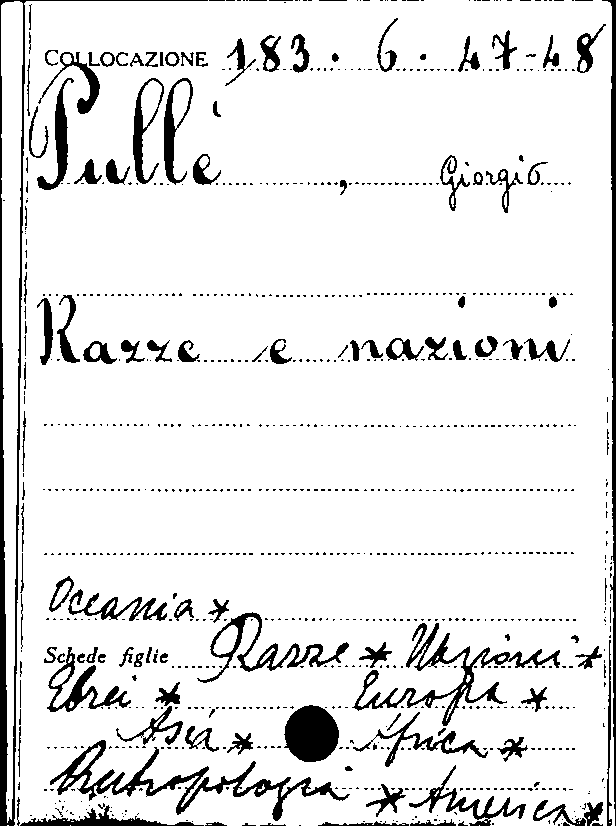 COLLOCAZIONE 183. 6. 47-48
Pullè, Giorgio
Razze e nazioni
Oceania *
Schede figlie Razze * Nazioni *
Ebrei * Europa *
Asia * Africa *
Antropologia * America *